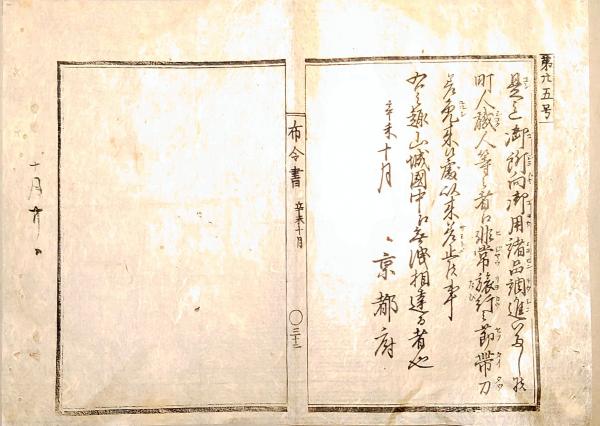 第六五号
是迄御所向御用諸品調進いたし候
町人職人等之者江非常旅行之節帯刀
差免来候処以来差止候事
右之趣山城国中江無洩相達る者也
辛未十月 京都府
布令書 辛未十月 〇三十二
十月